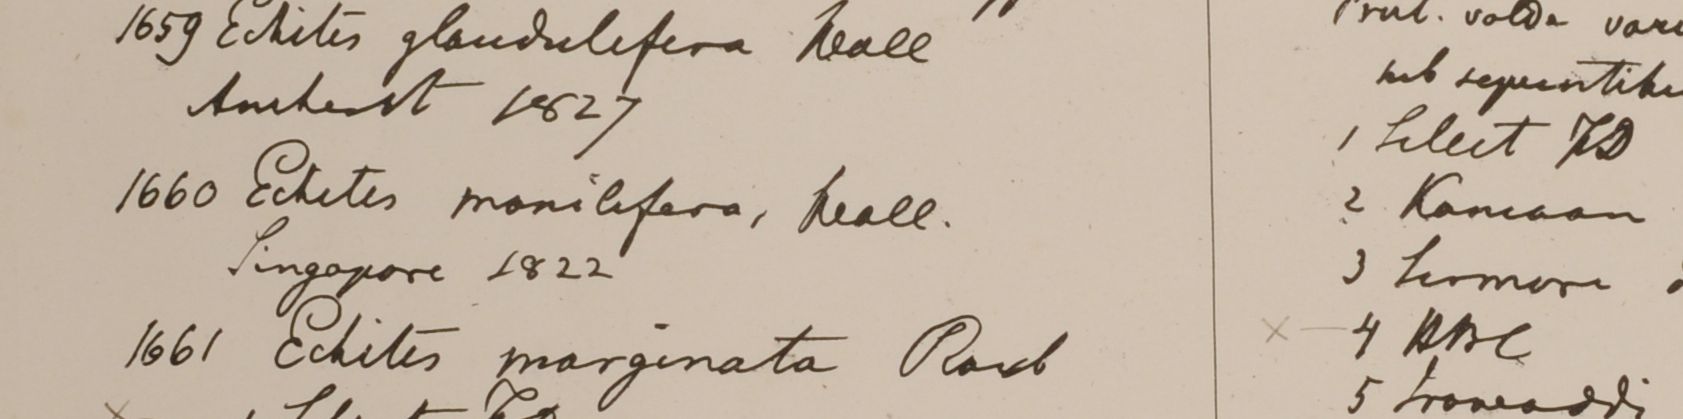 1659 Echites glandulifera Wall
Amherst 1827
1660 Echites monilifera, Wall.
Singapore 1822
1661 Echites marginata Roxb
1 Silhet FD
valde
sub sequentibu
1 Silhet FD
2 Kamaon
3 Sirmore
4 HBC
5 Irawaddi